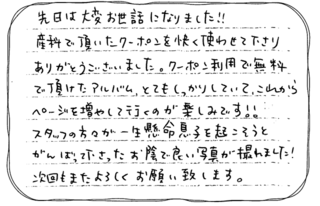 先日は大変お世話になりました!!
産科で頂いたクーポンを快く使わせて下さり
ありがとうございました。クーポン利用で無料
で頂けたアルバム、とてもしっかりしていて、これから
ページを増やして行くのが楽しみです!!
スタッフの方々が一生懸命息子を起こそうと
がんばって下さったお陰で良い写真が撮れました!
次回もまたよろしくお願い致します。